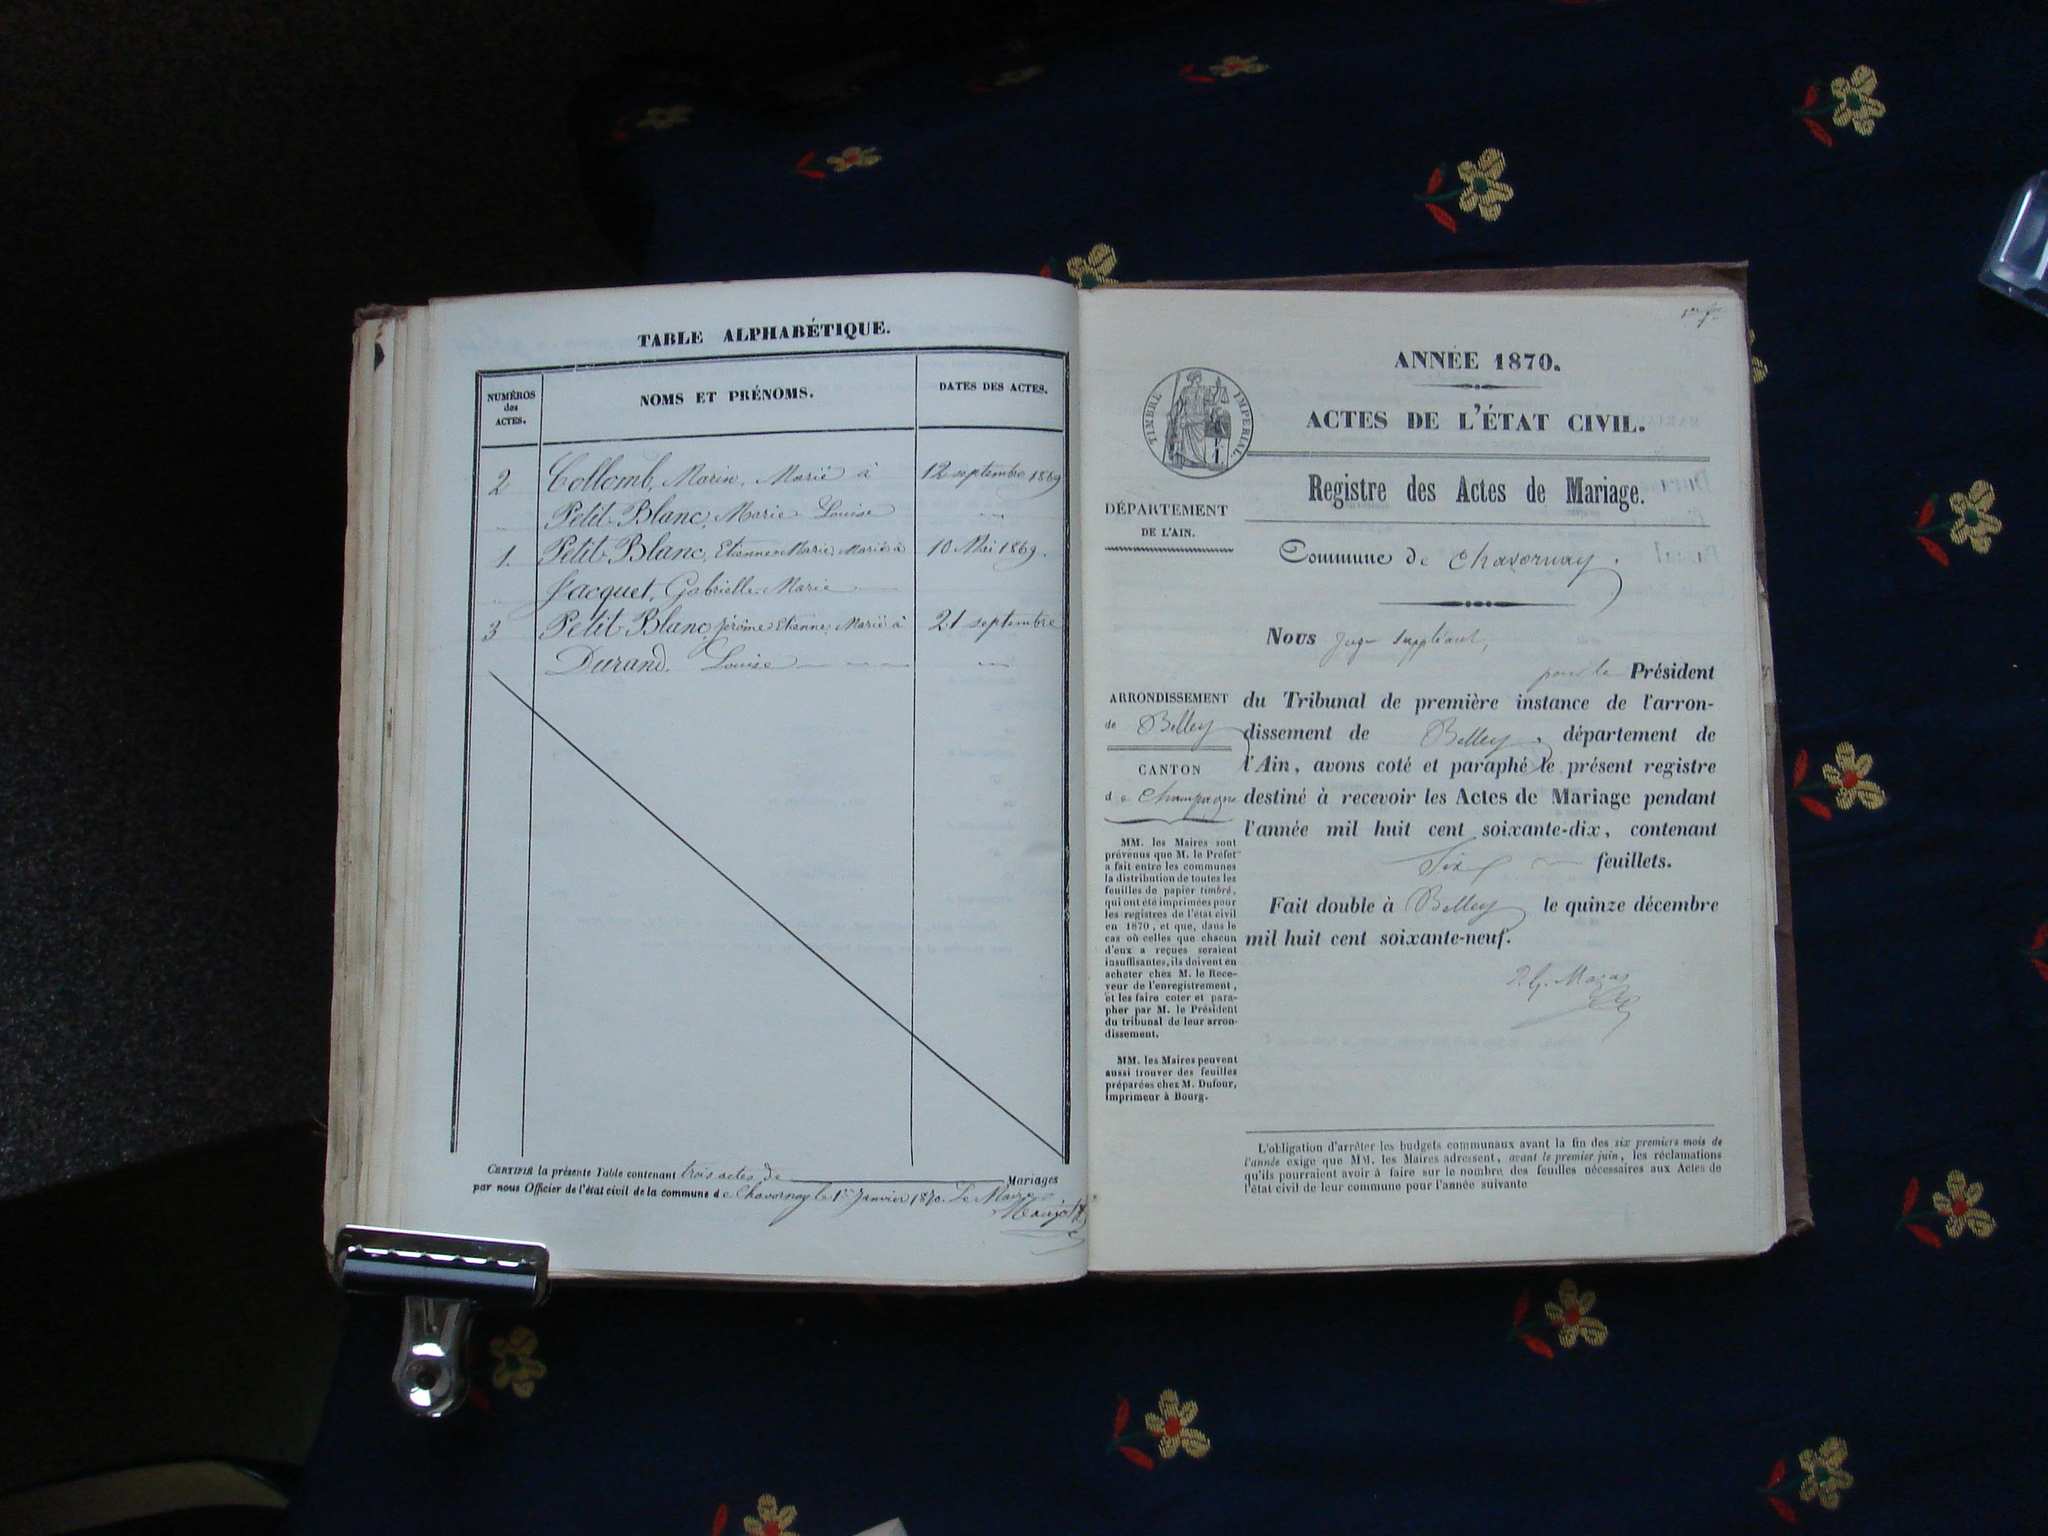 TABLE ALPHABÉTIQUE.
NUMÉROS
des
ACTES.
NOMS ET PRÉNOMS.
DATES DES ACTES.
2 Collomb, Marin, Marié à 12 septembre 1869
Petit-Blanc, Marie Louise
1. Petit-Blanc, Etienne Marie, Marié à 10 Mai 1869.
Jacquet, Gabrielle Marie
3 Petit-Blanc, Jérôme Etienne, Marié à 21 septembre
Durand, Louise
CERTIFIÉ la présente Table contenant trois actes de Mariages
par nous Officier de l'état civil de la commune de Chavornay le 1er Janvier 1870. Le Maire
ANNÉE 1870.
ACTES DE L'ÉTAT CIVIL.
TIMBRE IMPERIAL
Registre des Actes de Mariage.
DÉPARTEMENT
DE L'AIN.
Commune de Chavornay.
Nous Juge suppléant,
pour le Président
du Tribunal de première instance de l'arron-
dissement de Belley, département de
l'Ain, avons coté et paraphé le présent registre
destiné à recevoir les Actes de Mariage pendant
l'année mil huit cent soixante-dix, contenant
Six feuillets.
Fait double à Belley le quinze décembre
mil huit cent soixante-neuf.
ARRONDISSEMENT
de Belley
CANTON
de Champagne
MM. les Maires sont
prévenus que M. le Préfet
a fait entre les communes
la distribution de toutes les
feuilles de papier timbré,
qui ont été imprimées pour
les registres de l'état civil
en 1870, et que, dans le
cas où celles que chacun
d'eux a reçues seraient
insuffisantes, ils doivent en
acheter chez M. le Rece-
veur de l'enregistrement,
et les faire coter et para-
pher par M. le Président
du tribunal de leur arron-
dissement.
MM. les Maires peuvent
aussi trouver des feuilles
préparées chez M. Dufour,
imprimeur à Bourg.
L'obligation d'arrêter les budgets communaux avant la fin des six premiers mois de
l'année exige que MM. les Maires adressent, avant le premier juin, les réclamations
qu'ils pourraient avoir à faire sur le nombre des feuilles nécessaires aux Actes de
l'état civil de leur commune pour l'année suivante